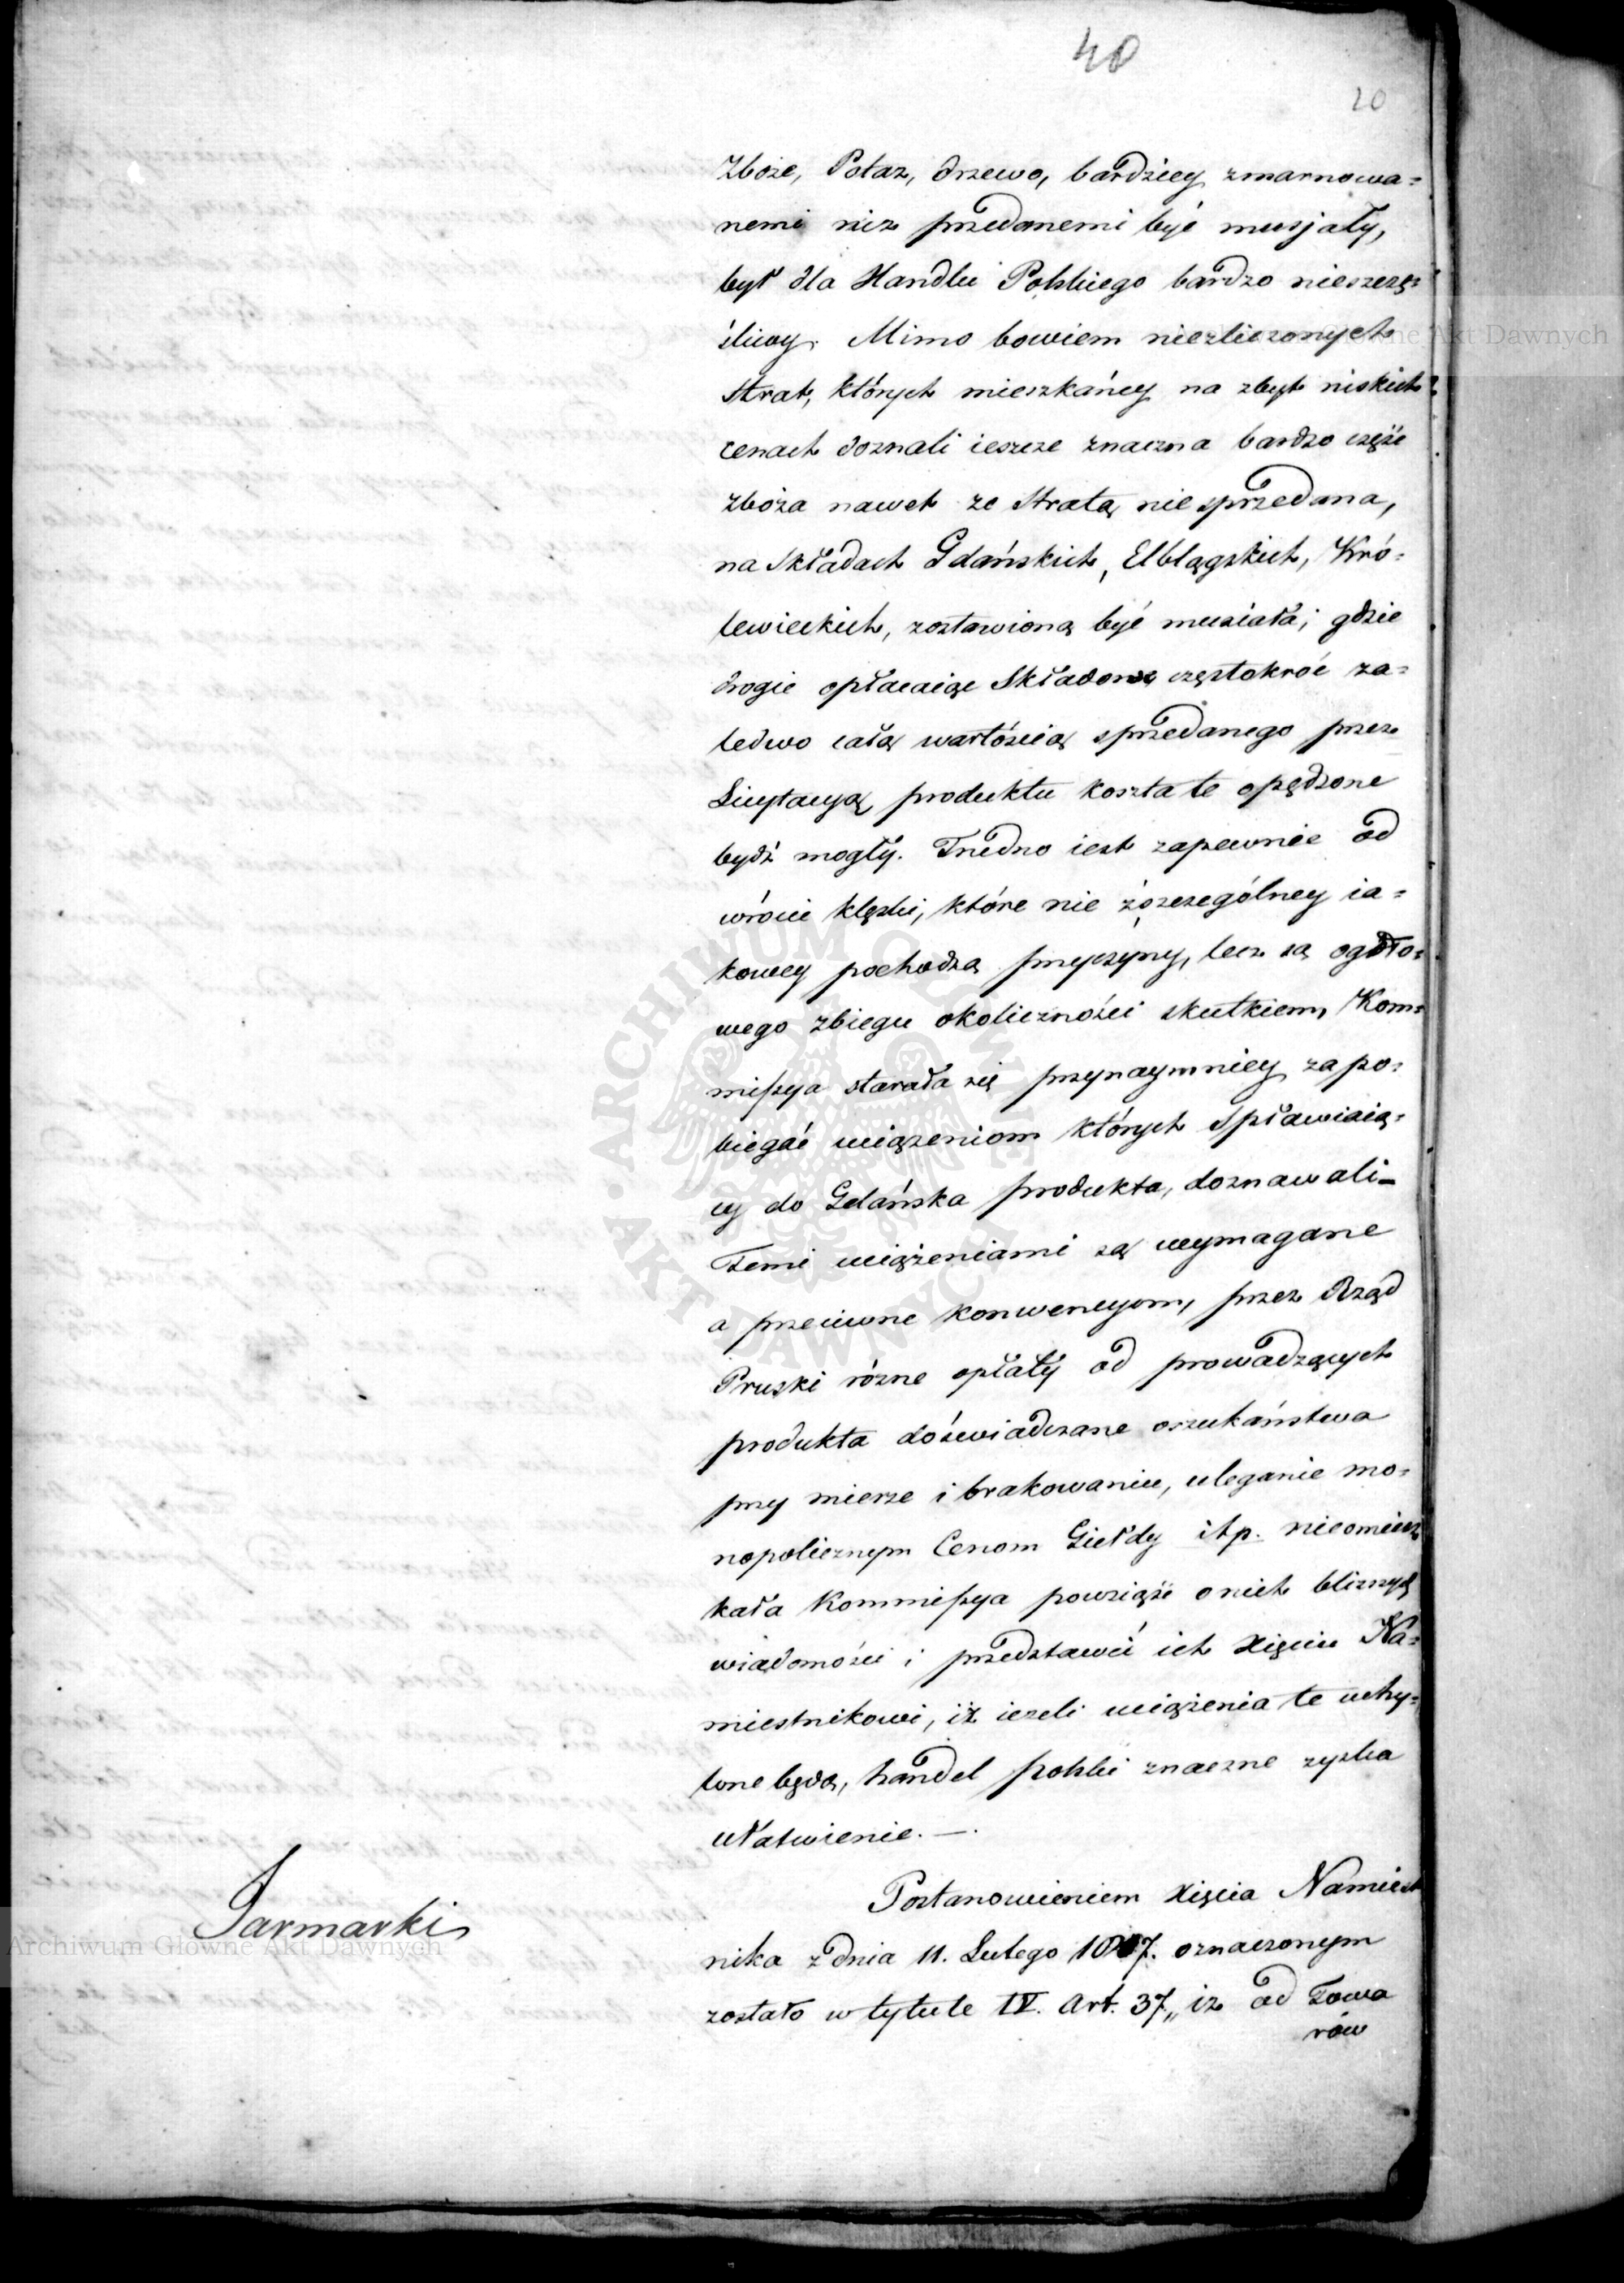 40
20
Zboże, Potaz, drzewo, bardziey zmarnowa=
nemi niz przedanemi być musjały,
był dla Handlu Polskiego bardzo nieszczę=
śliwy. Mimo bowiem niezliczonych
strat, których mieszkańcy na zbyt niskich
cenach doznali ieszcze znaczna bardzo część
zboża nawet ze stratą nie sprzedana,
na Składach Gdańskich, Elblągskich, Kró=
lewieckich, zostawioną być musiała; gdzie
drogie opłacaiąc Składowe częstokroć za=
ledwo całą wartością sprzedanego przez
Licytacyą produktu koszta te opędzone
bydź mogły. Trudno iest zapewnie od
wrócić klęski, które nie z szczególney ia=
kowey pochodzą przyczyny, lecz są ogóło=
wego zbiegu okoliczności skutkiem, Kom=
missya starała się przynaymniey zapo=
biegać uciążeniom których Spławiaią=
cy do Gdańska produkta, doznawali –
Temi uciążeniami są wymagane
a przeciwne konwencyom, przez Rząd
Pruski rózne opłaty od prowadzących
produkta doświadczane oszukaństwa
przy mierze i brakowaniu, uleganie mo=
nopolicznym Cenom Giełdy itp. nieomiesz
kała Kommissya powziąść o nich bliższych
wiadomości i przedstawić ich Xięciu Na=
miestnikowi, iż iezeli uciążenia te uchy=
lone będą, handel polski znaczne zyska
ułatwienie. —.
Jarmarki
Postanowieniem Xięcia Namiest
nika z dnia 11. Lutego 1817. oznaczonym
zostało w tytule IV. Art. 37 „ iz od Towa
rów
Archiwum Główne Akt Dawnych
Archiwum Główne Akt Dawnych
ARCHIWUM GŁÓWNE
AKT DAWNYCH